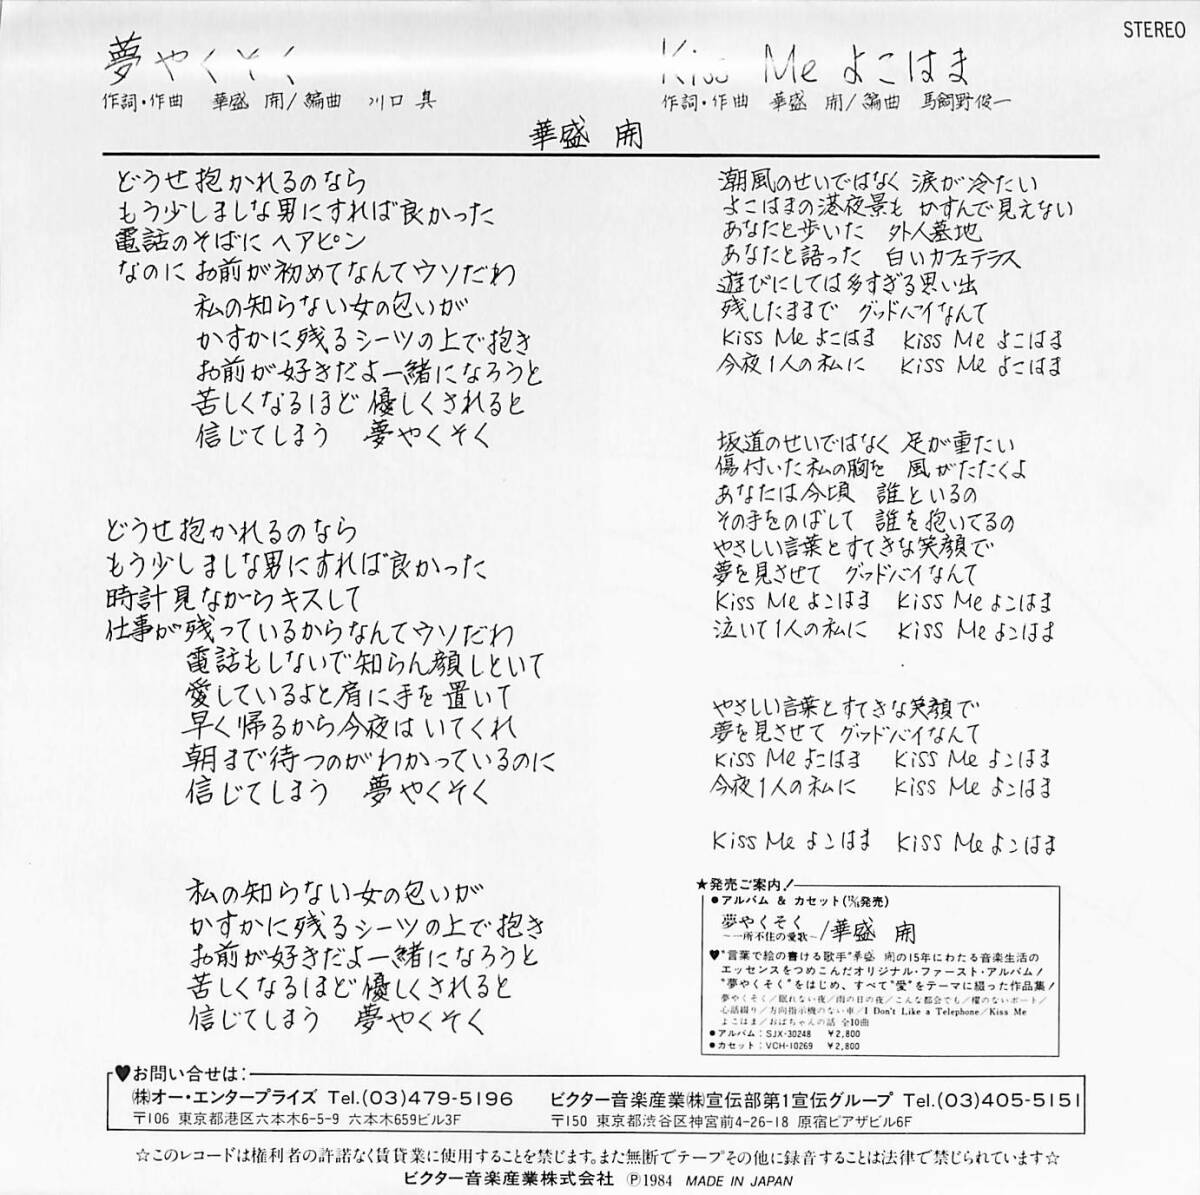 STEREO
夢やくそく
作詞・作曲 華盛 開/編曲 川口 真
Kiss Me よこはま
作詞・作曲 華盛 開/編曲 馬飼野俊一
華盛 開
どうせ抱かれるのなら
もう少しましな男にすれば良かった
電話のそばに ヘアピン
なのに お前が初めてなんてウソだわ
私の知らない女の匂いが
かすかに残るシーツの上で抱き
お前が好きだよ一緒になろうと
苦しくなるほど優しくされると
信じてしまう 夢やくそく
どうせ抱かれるのなら
もう少しましな男にすれば良かった
時計見ながらキスして
仕事が残っているからなんてウソだわ
電話もしないで知らん顔しといて
愛しているよと肩に手を置いて
早く帰るから今夜はいてくれ
朝まで待つのがわかっているのに
信じてしまう 夢やくそく
私の知らない女の匂いが
かすかに残るシーツの上で抱き
お前が好きだよ一緒になろうと
苦しくなるほど優しくされると
信じてしまう 夢やくそく
潮風のせいではなく 涙が冷たい
よこはまの港夜景も かすんで見えない
あなたと歩いた 外人墓地
あなたと語った 白いカフェテラス
遊びにしては多すぎる思い出
残したままで グッドバイなんて
Kiss Me よこはま Kiss Me よこはま
今夜1人の私に Kiss Me よこはま
坂道のせいではなく 足が重たい
傷付いた私の胸を 風がたたくよ
あなたは今頃 誰といるの
その手をのばして 誰を抱いてるの
やさしい言葉とすてきな笑顔で
夢を見させて グッドバイなんて
Kiss Me よこはま Kiss Me よこはま
泣いて1人の私に Kiss Me よこはま
やさしい言葉とすてきな笑顔で
夢を見させて グッドバイなんて
Kiss Me よこはま Kiss Me よこはま
今夜1人の私に Kiss Me よこはま
Kiss Me よこはま Kiss Me よこはま
★発売ご案内!
●アルバム & カセット(11/16発売)
夢やくそく
〜一所不住の愛歌〜/華盛 開
♥"言葉で絵の書ける歌手"華盛 開の15年にわたる音楽生活の
エッセンスをつめこんだオリジナル・ファースト・アルバム!
"夢やくそく"をはじめ、すべて"愛"をテーマに綴った作品集!
夢やくそく/眠れない夜/雨の日の夜/こんな都会でも/櫂のないボート/
心話綴り/方向指示機のない車/I Don't Like a Telephone/Kiss Me
よこはま/おばちゃんの話 全10曲
●アルバム:SJX-30248 ￥2,800
●カセット:VCH-10269 ￥2,800
♥お問い合せは:
㈱オー・エンタープライズ Tel.(03)479-5196
〒106 東京都港区六本木6-5-9 六本木659ビル3F
ビクター音楽産業㈱宣伝部第1宣伝グループ Tel.(03)405-5151
〒150 東京都渋谷区神宮前4-26-18 原宿ピアザビル6F
☆このレコードは権利者の許諾なく賃貸業に使用することを禁じます。また無断でテープその他に録音することは法律で禁じられています☆
ビクター音楽産業株式会社 Ⓟ1984 MADE IN JAPAN